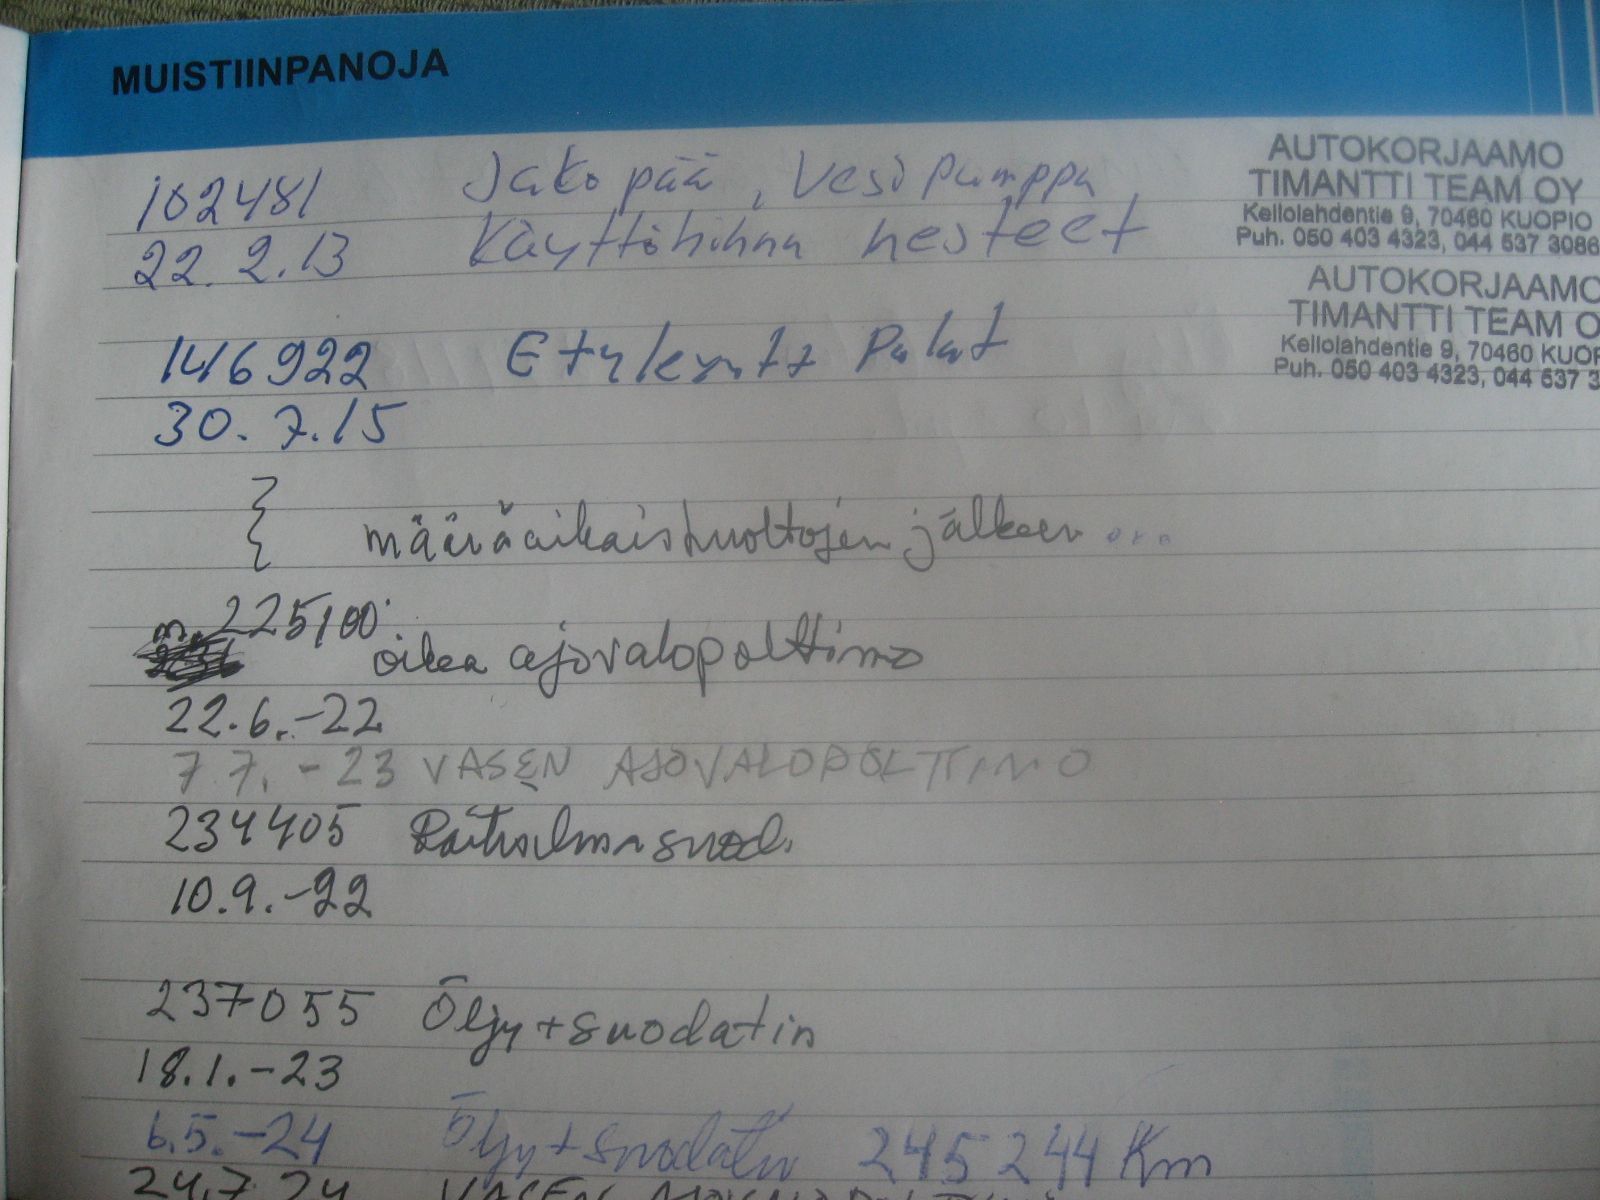 MUISTIINPANOJA
AUTOKORJAAMO
TIMANTTI TEAM OY
Kellolahdentie 9, 70460 KUOPIO
Puh. 050 403 4323, 044 537 3086
102481 Jakopää, Vesipumppu
22.2.13 Käyttöhihna nesteet
AUTOKORJAAMO
TIMANTTI TEAM O
Kellolahdentie 9, 70460 KUOP
Puh. 050 403 4323, 044 537 3
146922 Etu Palat
30.7.15
määräaikaishuoltojen jälkeen ...
n. 225100
oikea ajovalopolttimo
22.6.-22
7.7.-23 VASEN AJOVALOPOLTTIMO
234405 Raitisilmasuod.
10.9.-22
237055 Öljy+suodatin
18.1.-23
6.5.-24 Öljy+suodatin 245244 Km
24.7.24 VASEN